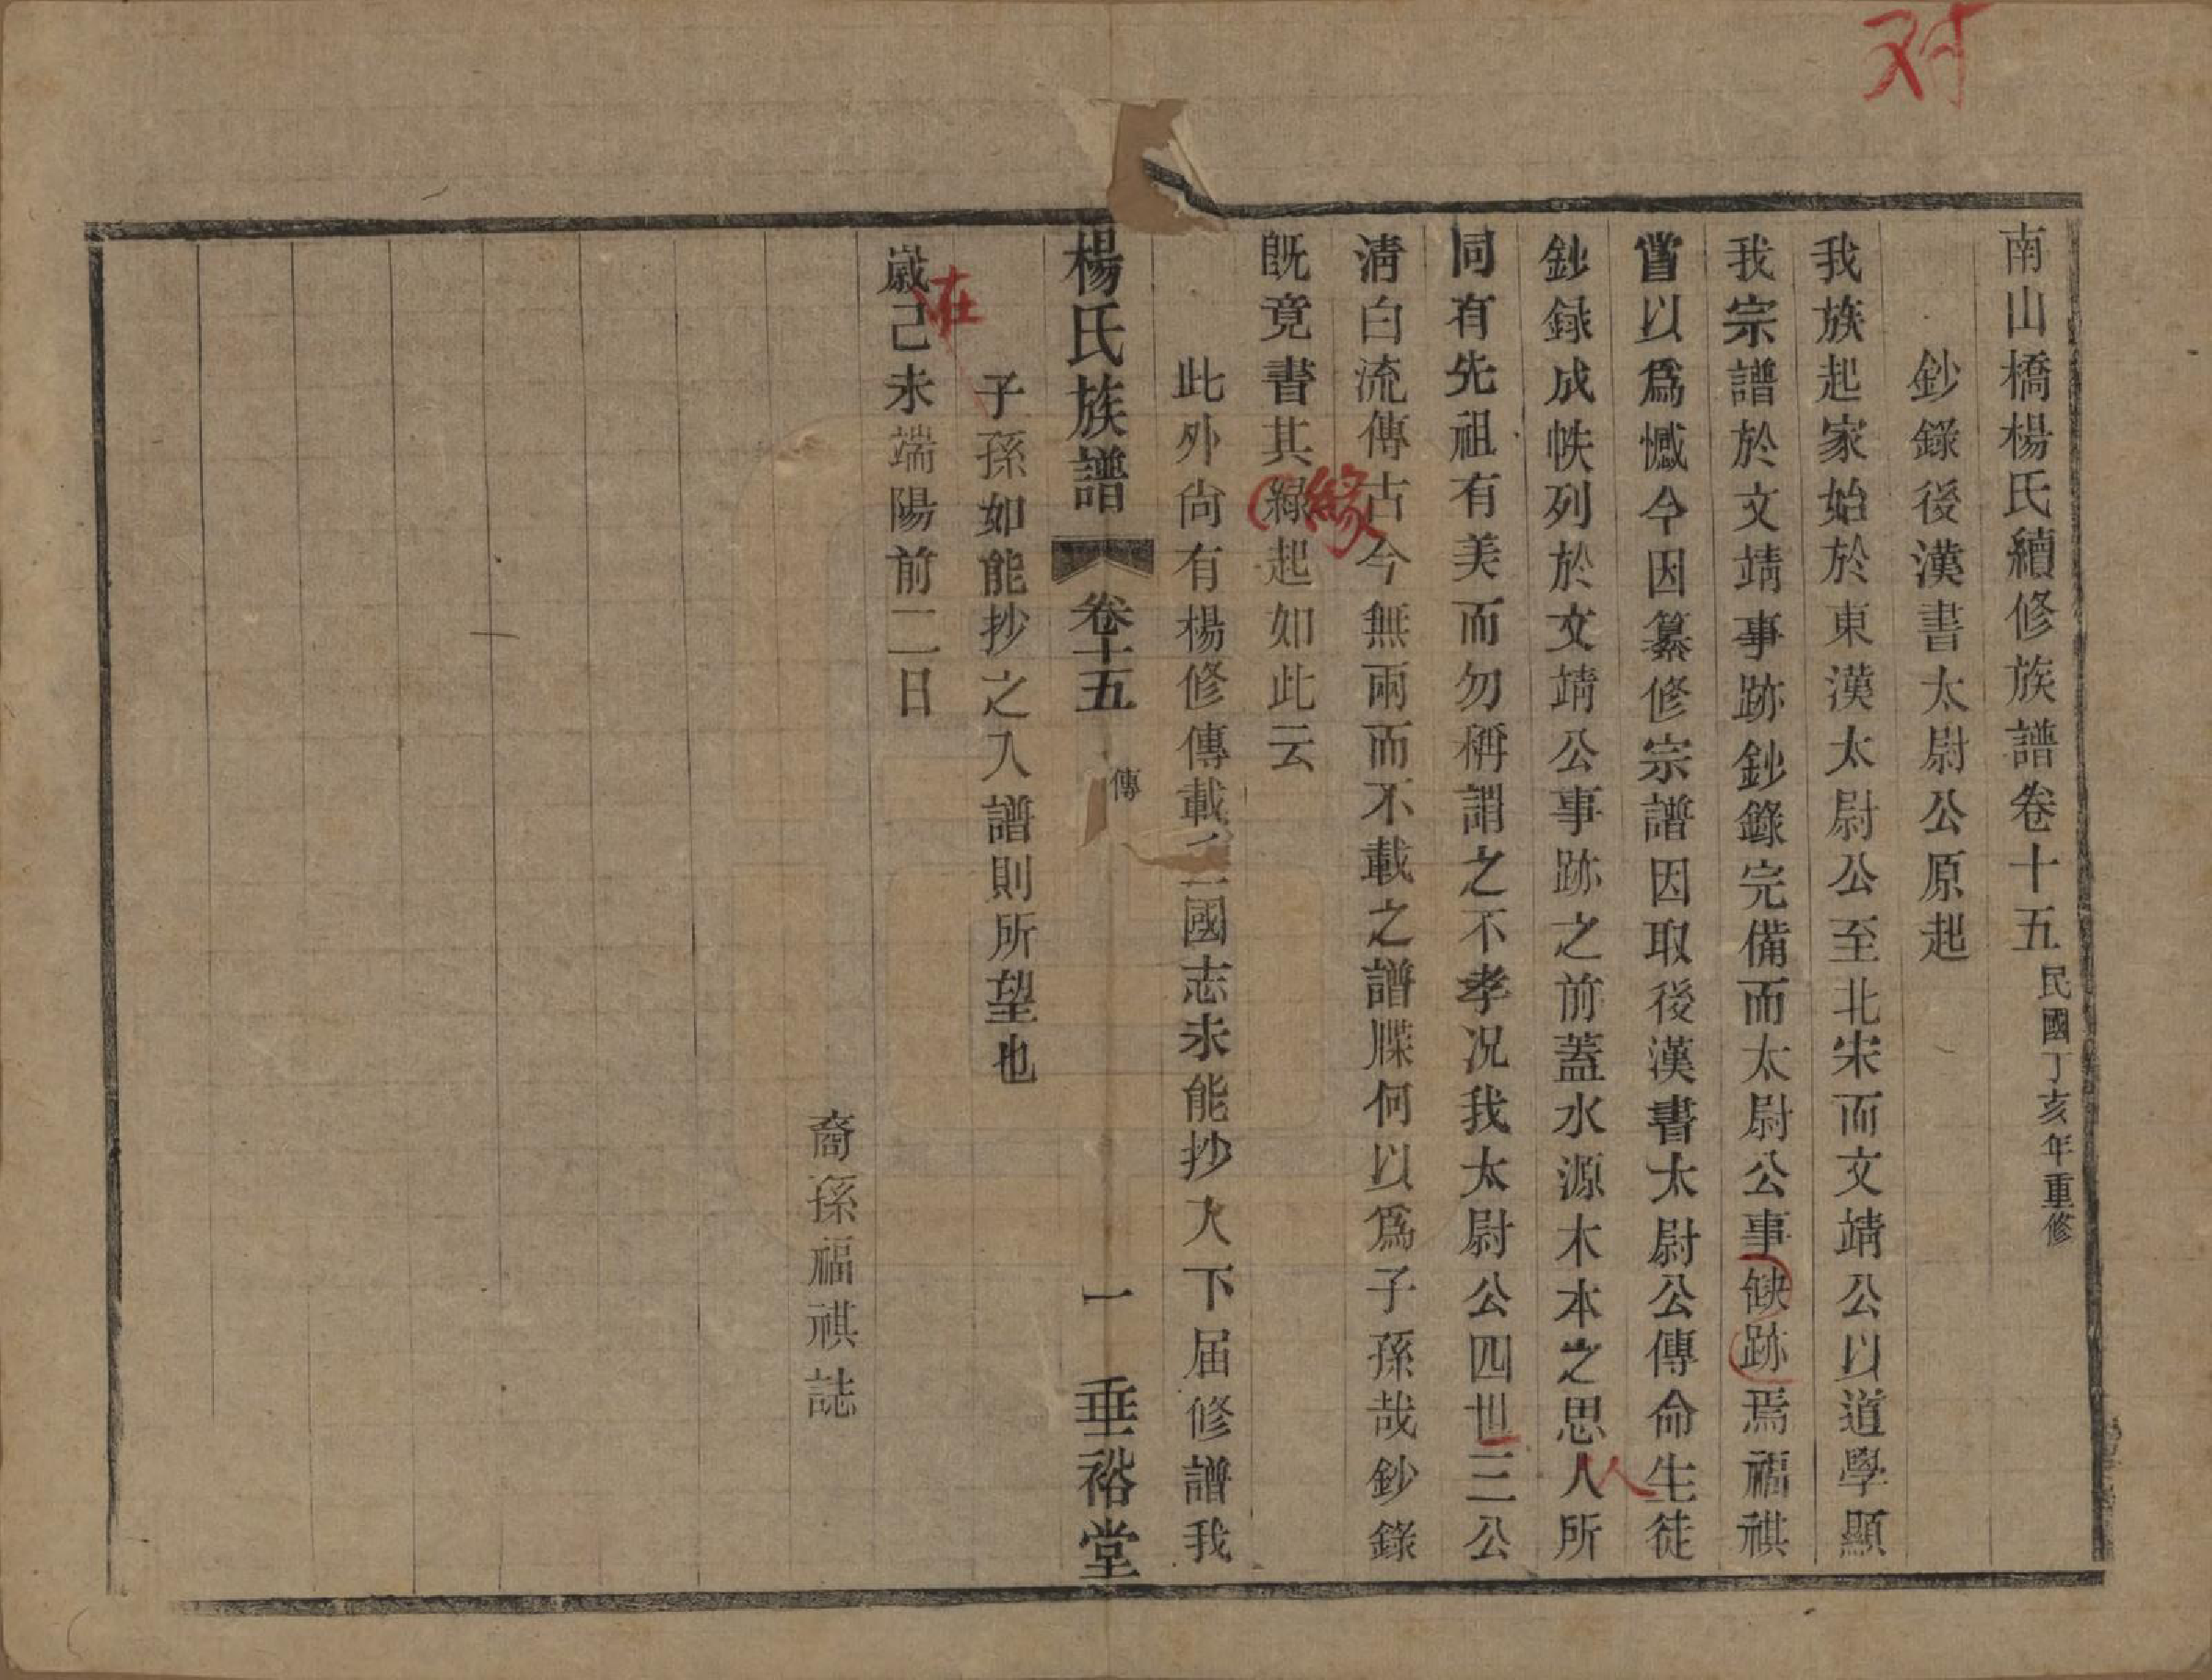 对
南山橋楊氏續修族譜卷十五 民國丁亥年重修
鈔錄後漢書太尉公原起
我族起家始於東漢太尉公至北宋而文靖公以道學顯
我宗譜於文靖事跡鈔錄完備而太尉公事缺跡焉福祺
嘗以爲憾今因纂修宗譜因取後漢書太尉公傳命生徒
鈔録成帙列於文靖公事跡之前蓋水源木本之思人人所
同有先祖有美而勿稱謂之不孝况我太尉公四世三公
淸白流傳古今無兩而不載之譜牒何以爲子孫哉鈔錄
旣竟書其綠緣起如此云
此外尙有楊修傳載 三國志未能抄入下届修譜我
楊氏族譜 卷十五 傳 一 垂裕堂
子孫如能抄之入譜則所望也
歲在己未端陽前二日
裔孫福祺誌